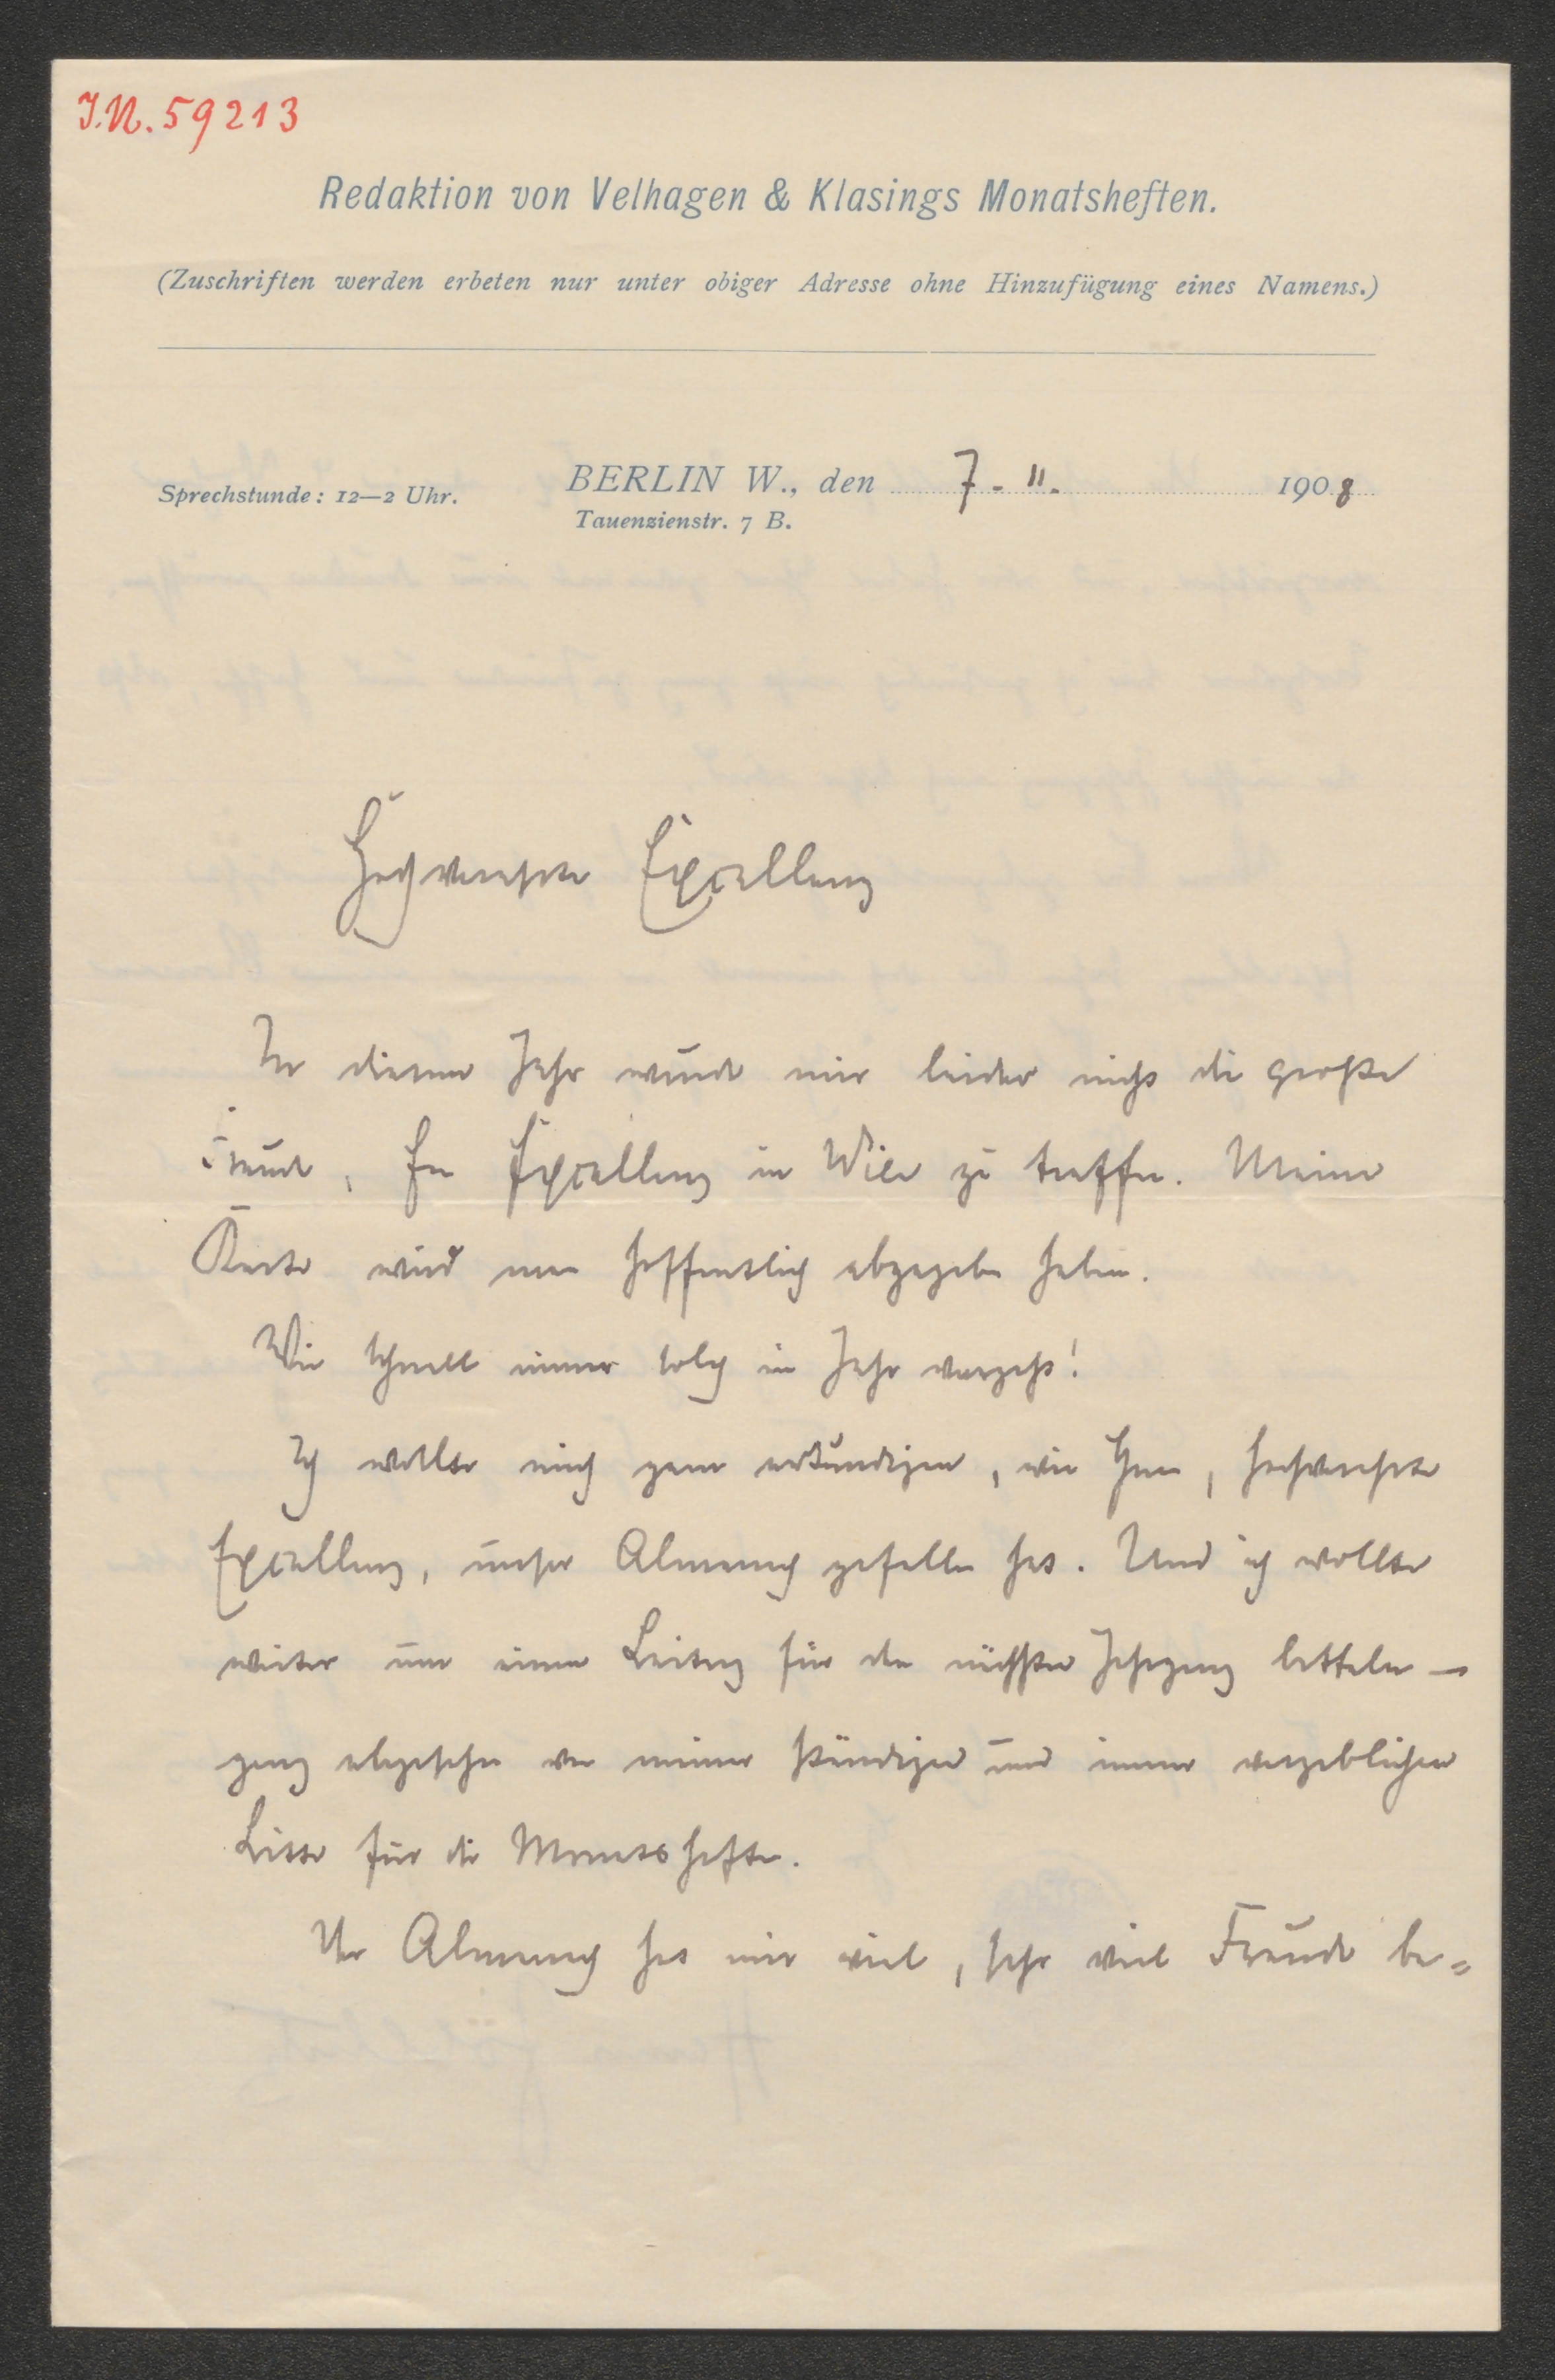 J.N. 59213
Redaktion von Velhagen & Klasings Monatsheften.
(Zuschriften werden erbeten nur unter obiger Adresse ohne Hinzufügung eines Namens.)
Sprechstunde: 12—2 Uhr.
BERLIN W., den 7. 11. 1908
Tauenzienstr. 7 B.
Hochverehrte Excellenz
In diesem Jahr wurde mir leider nicht die große
Freude, Ew Excellenz in Wien zu treffen. Meine
Karte wird man hoffentlich abgegeben haben.
Wie schnell immer solch ein Jahr vergeht!
Ich wollte mich gern erkundigen, wie Ihnen, hochverehrte
Excellenz, unser Almanach gefallen hat. Und ich wollte
weiter um einen Beitrag für den nächsten Jahrgang betteln —
ganz abgesehen von meiner ständigen und immer vergeblichen
Bitte für die Monatshefte.
Der Almanach hat mir viel, sehr viel Freude be=